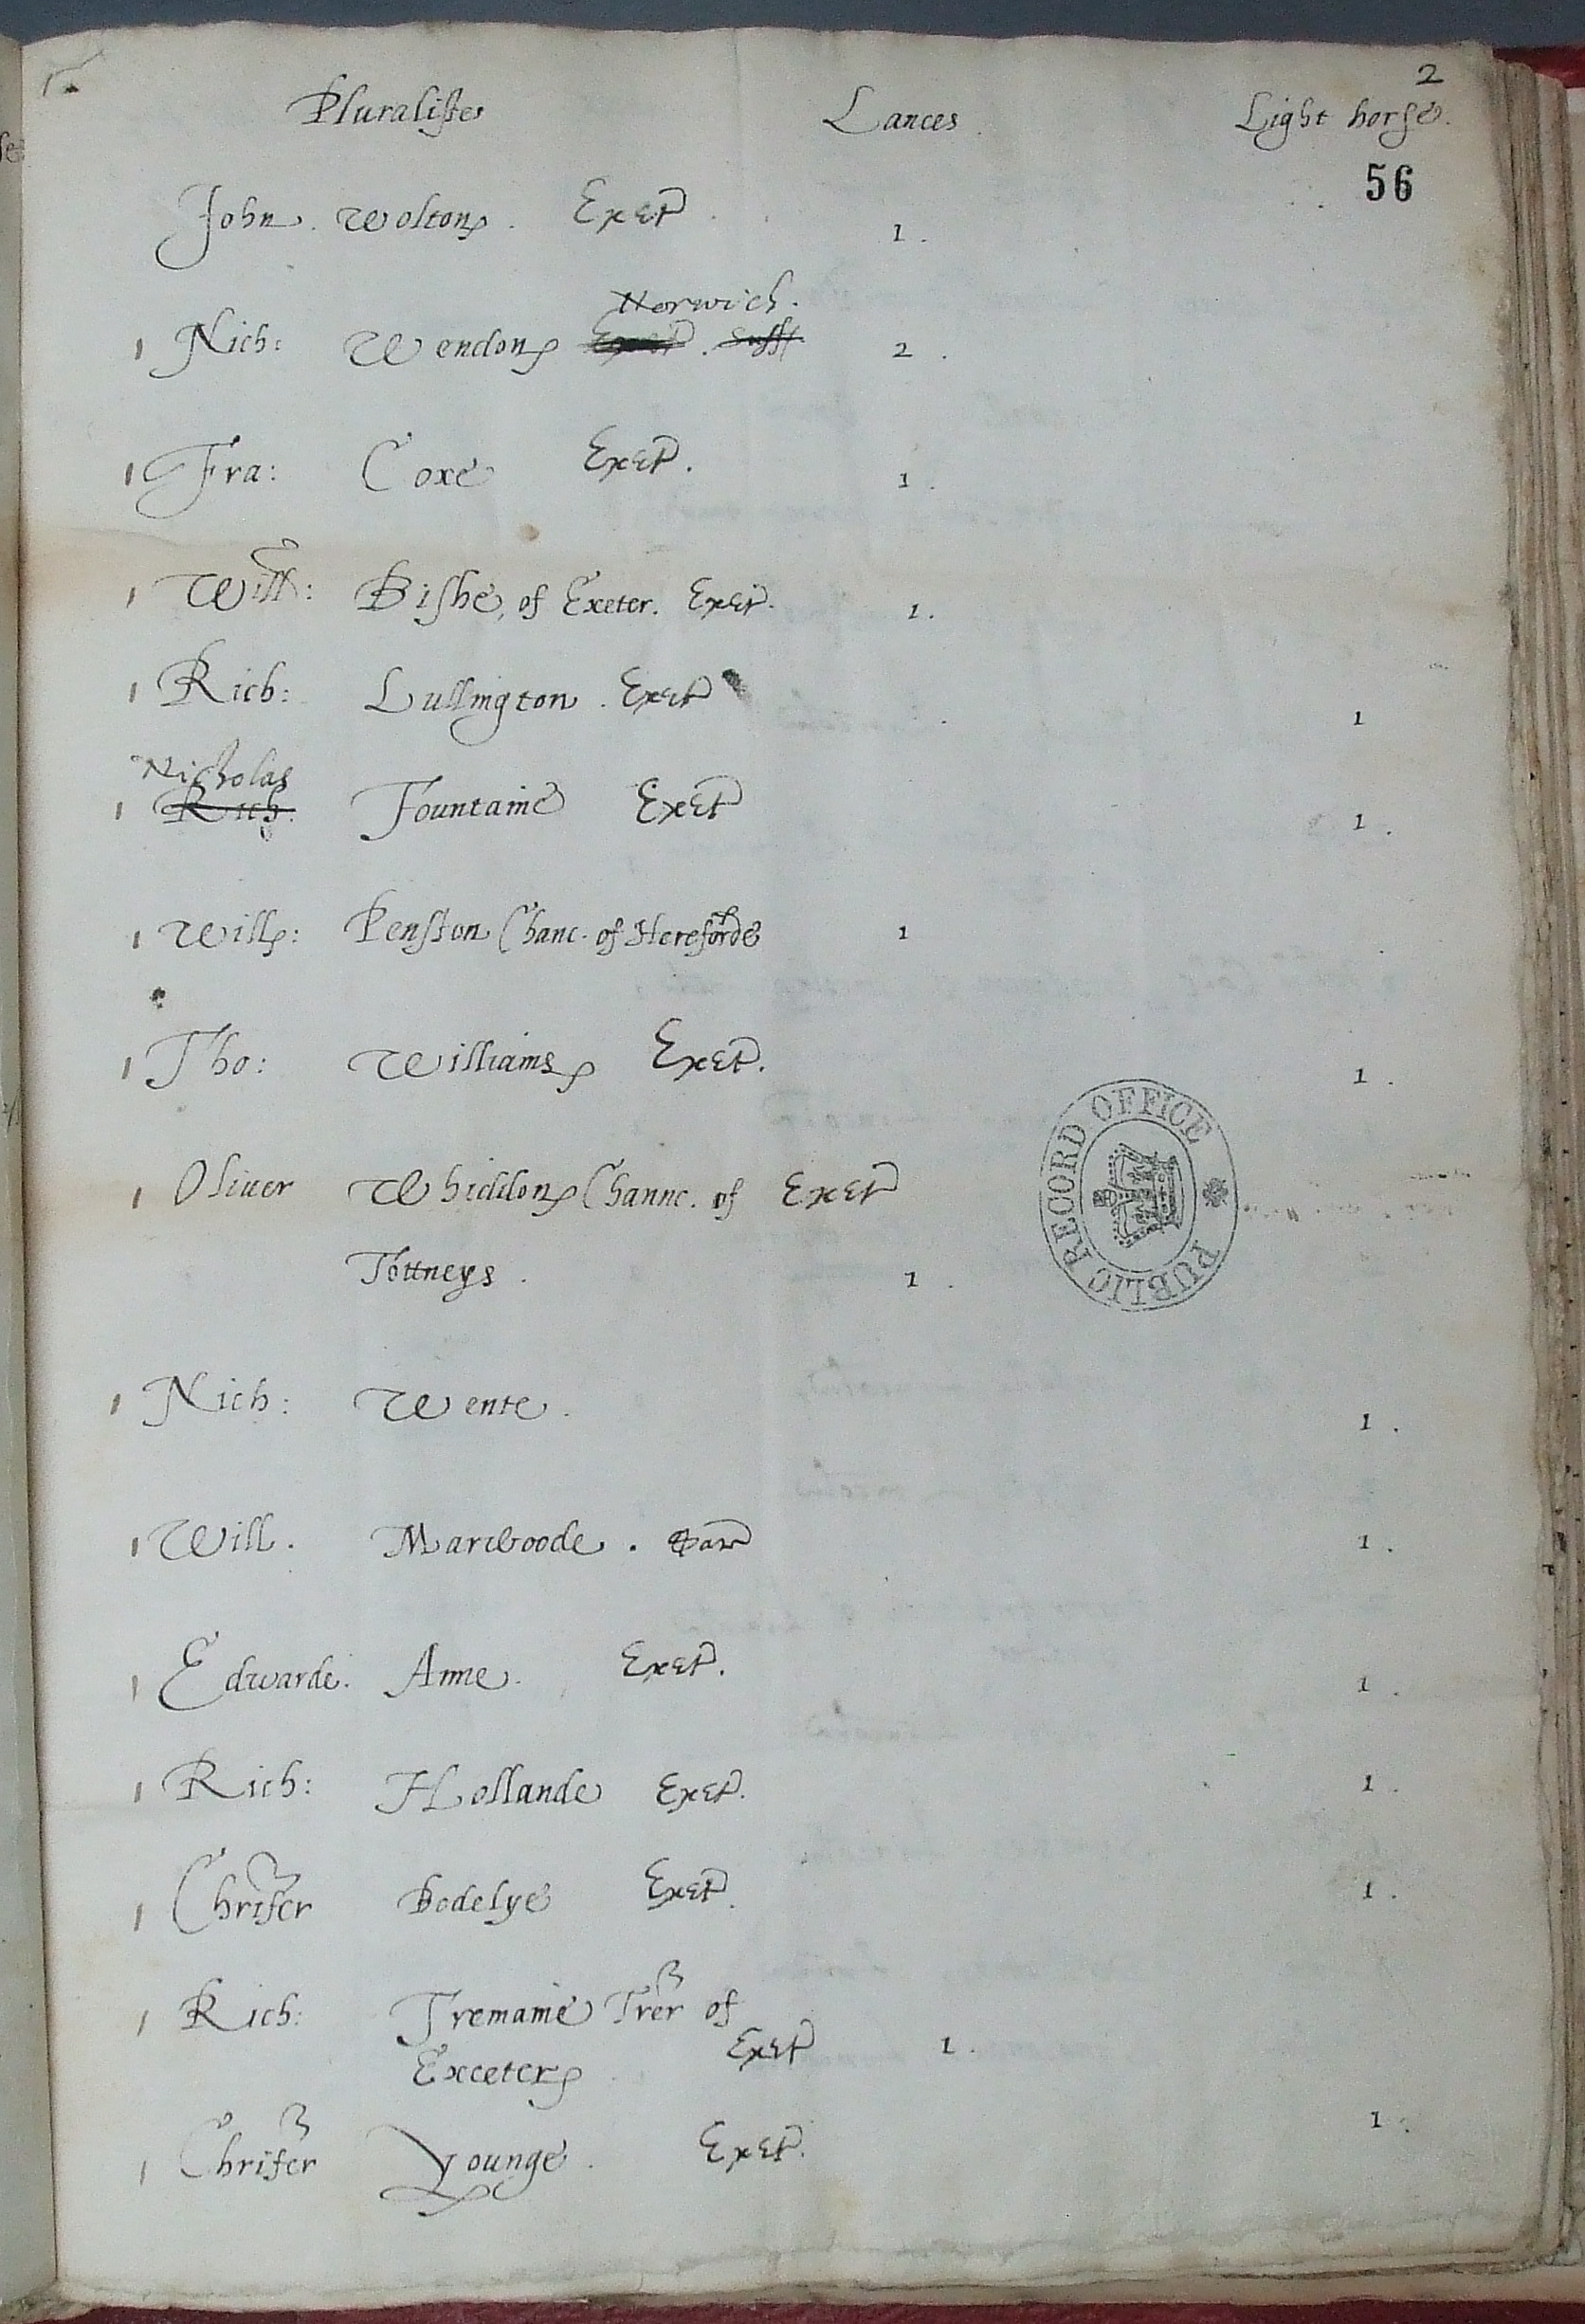 2
Pluralistes Lances Light horse.
56
John. Wolton. Exet 1.
Norwich.
1 Nich: Wendon Exet. Suff 2.
1 Fra: Coxe Exet. 1.
1 Will: Bishe, of Exeter. Exet. 1.
1 Rich: Lullington. Exet 1
Nicholas
1 Rich: Fountaine Exet 1.
1 Will: Penston Chanc. of Hereforde 1
1 Tho: Williams Exet. 1.
1 Oliuer Whiddon Channc. of Exet
Tottneys. 1.
1 Nich: Wente. 1.
1 Will. Marwoode. 1.
1 Edwarde. Anne. Exet. 1.
1 Rich: Hollande Exet. 1.
1 Chrifer Bodelye Exet. 1.
1 Rich: Tremaine Trer of
Exceter Exet 1.
1 Chrifer Younge. Exet. 1.
PUBLIC RECORD OFFICE